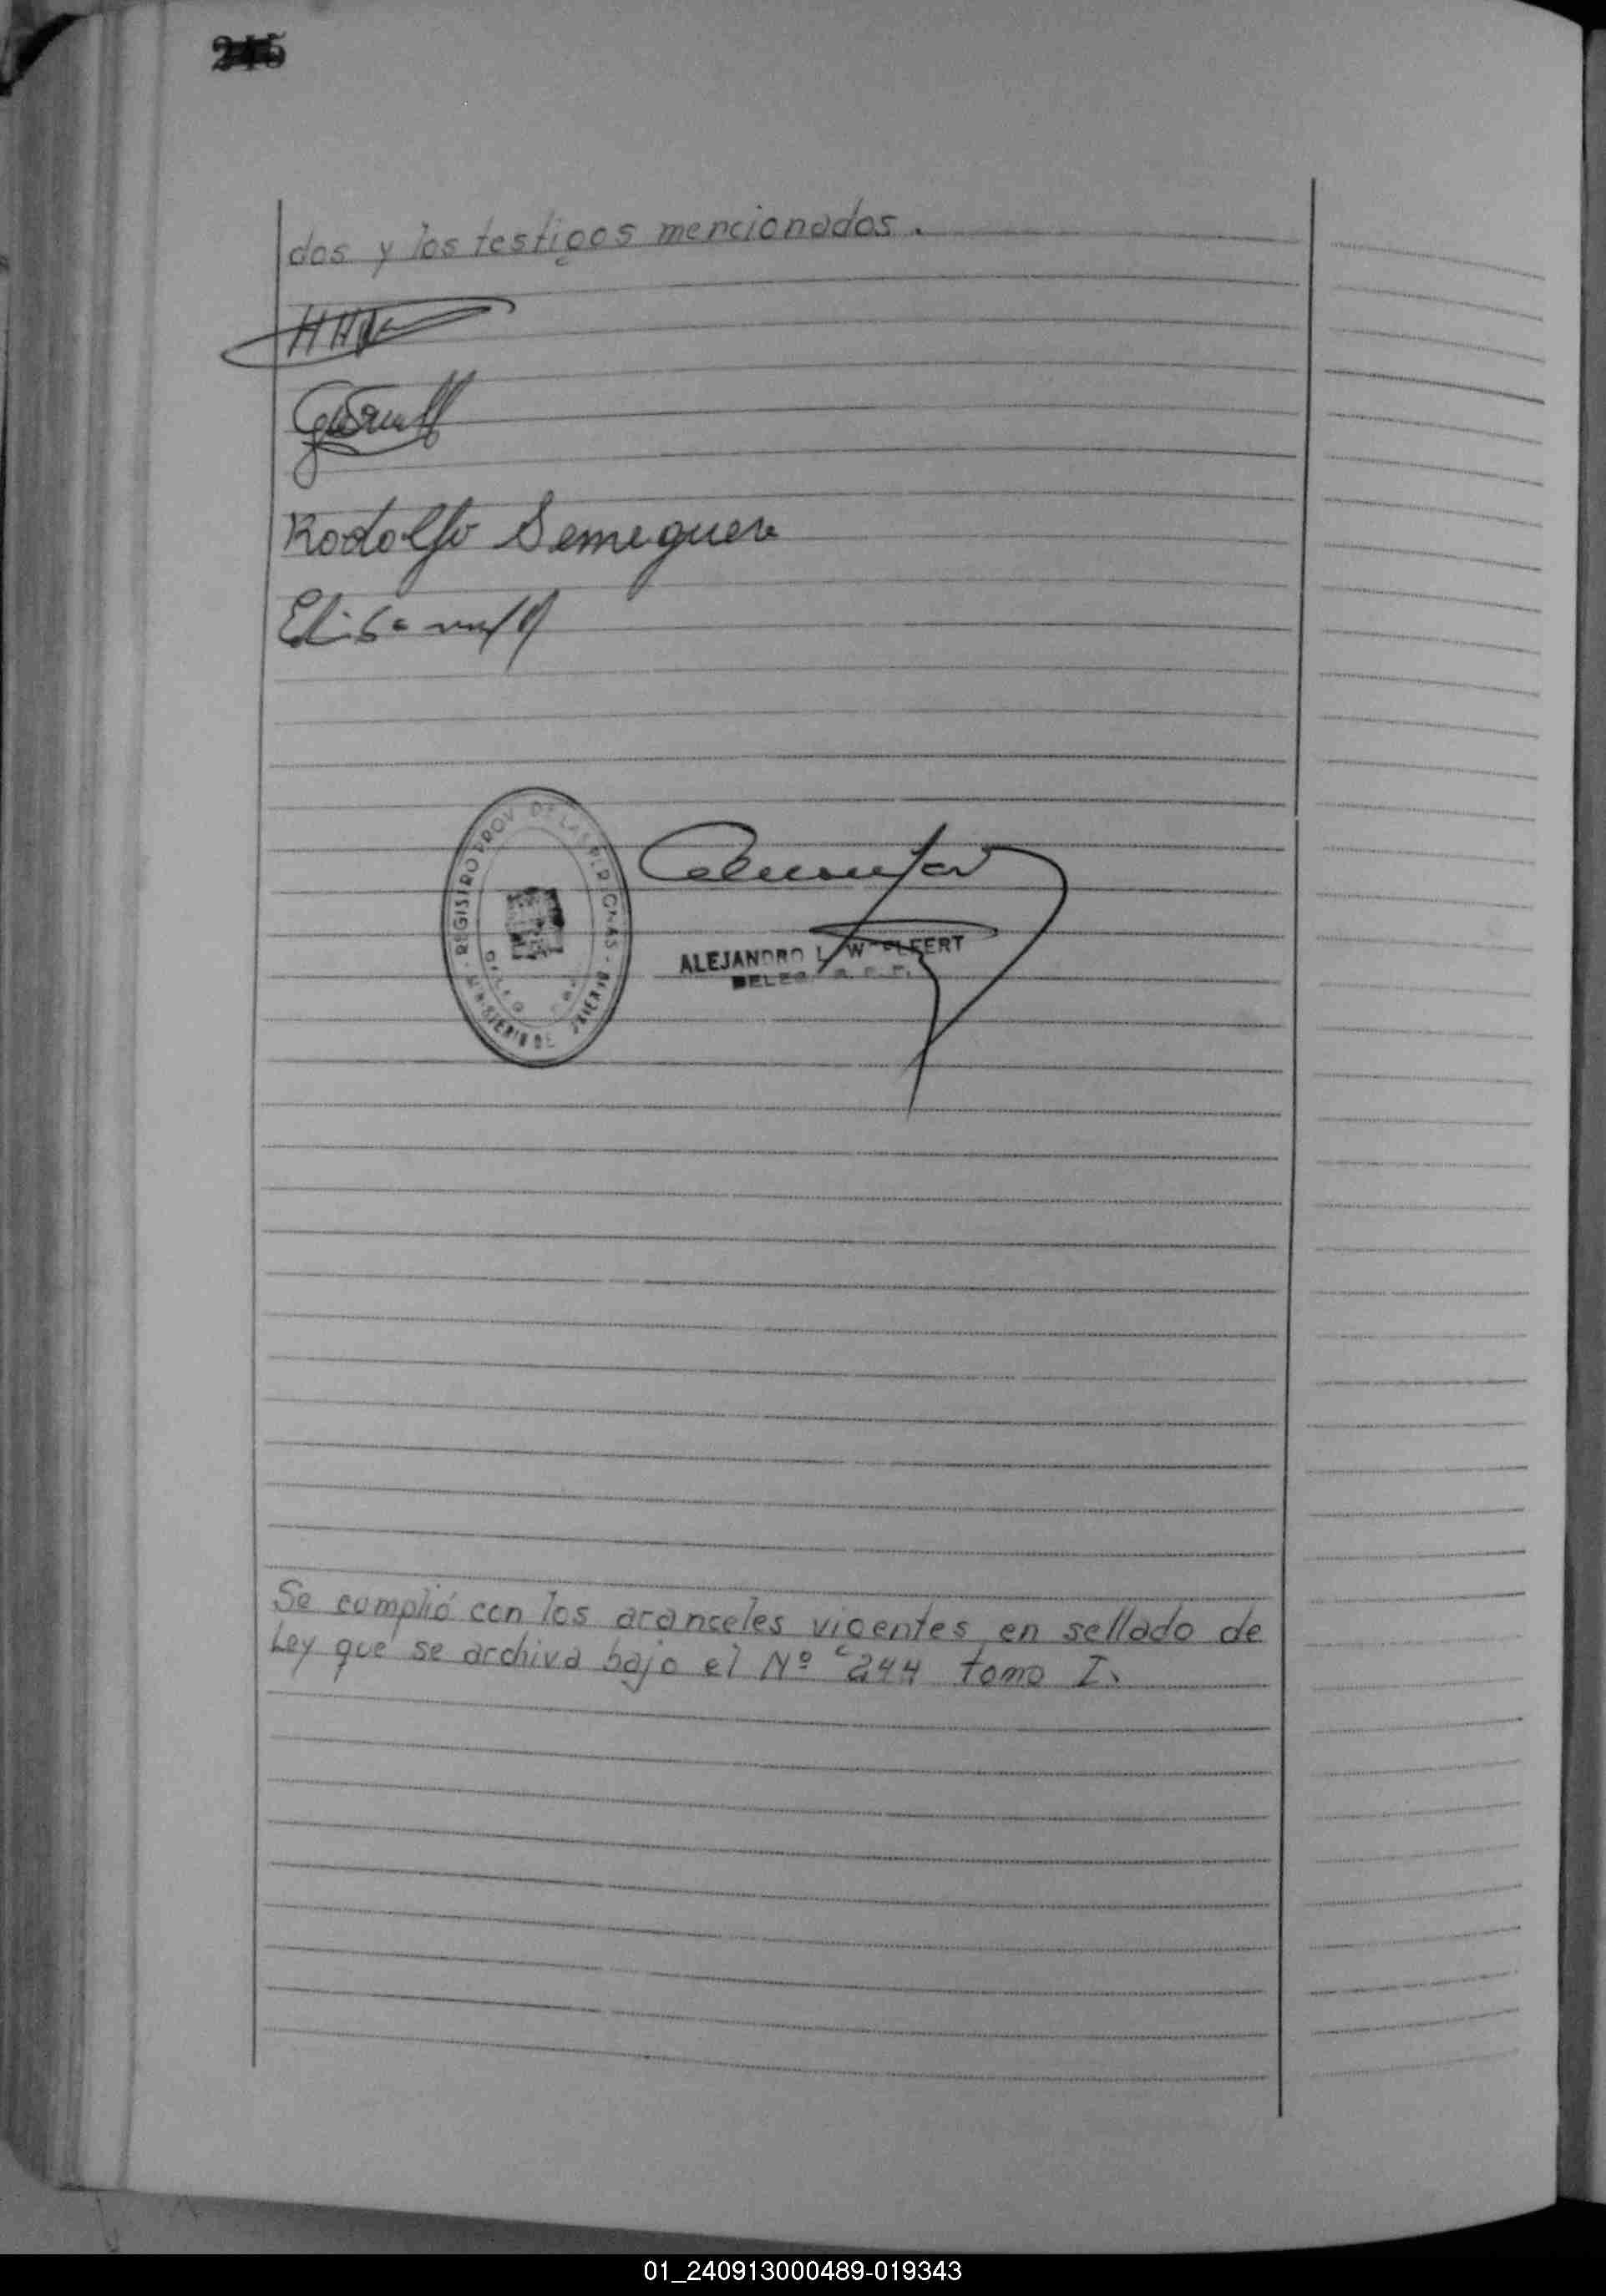 245
dos y los testigos mencionados.
Rodolfo Semeguen
REGISTRO PROV. DE LAS PERSONAS
MINISTERIO DE
ALEJANDRO L. W
Se cumplió con los aranceles vigentes en sellado de
Ley que se archiva bajo el Nº 244 tomo I.
01_240913000489-019343